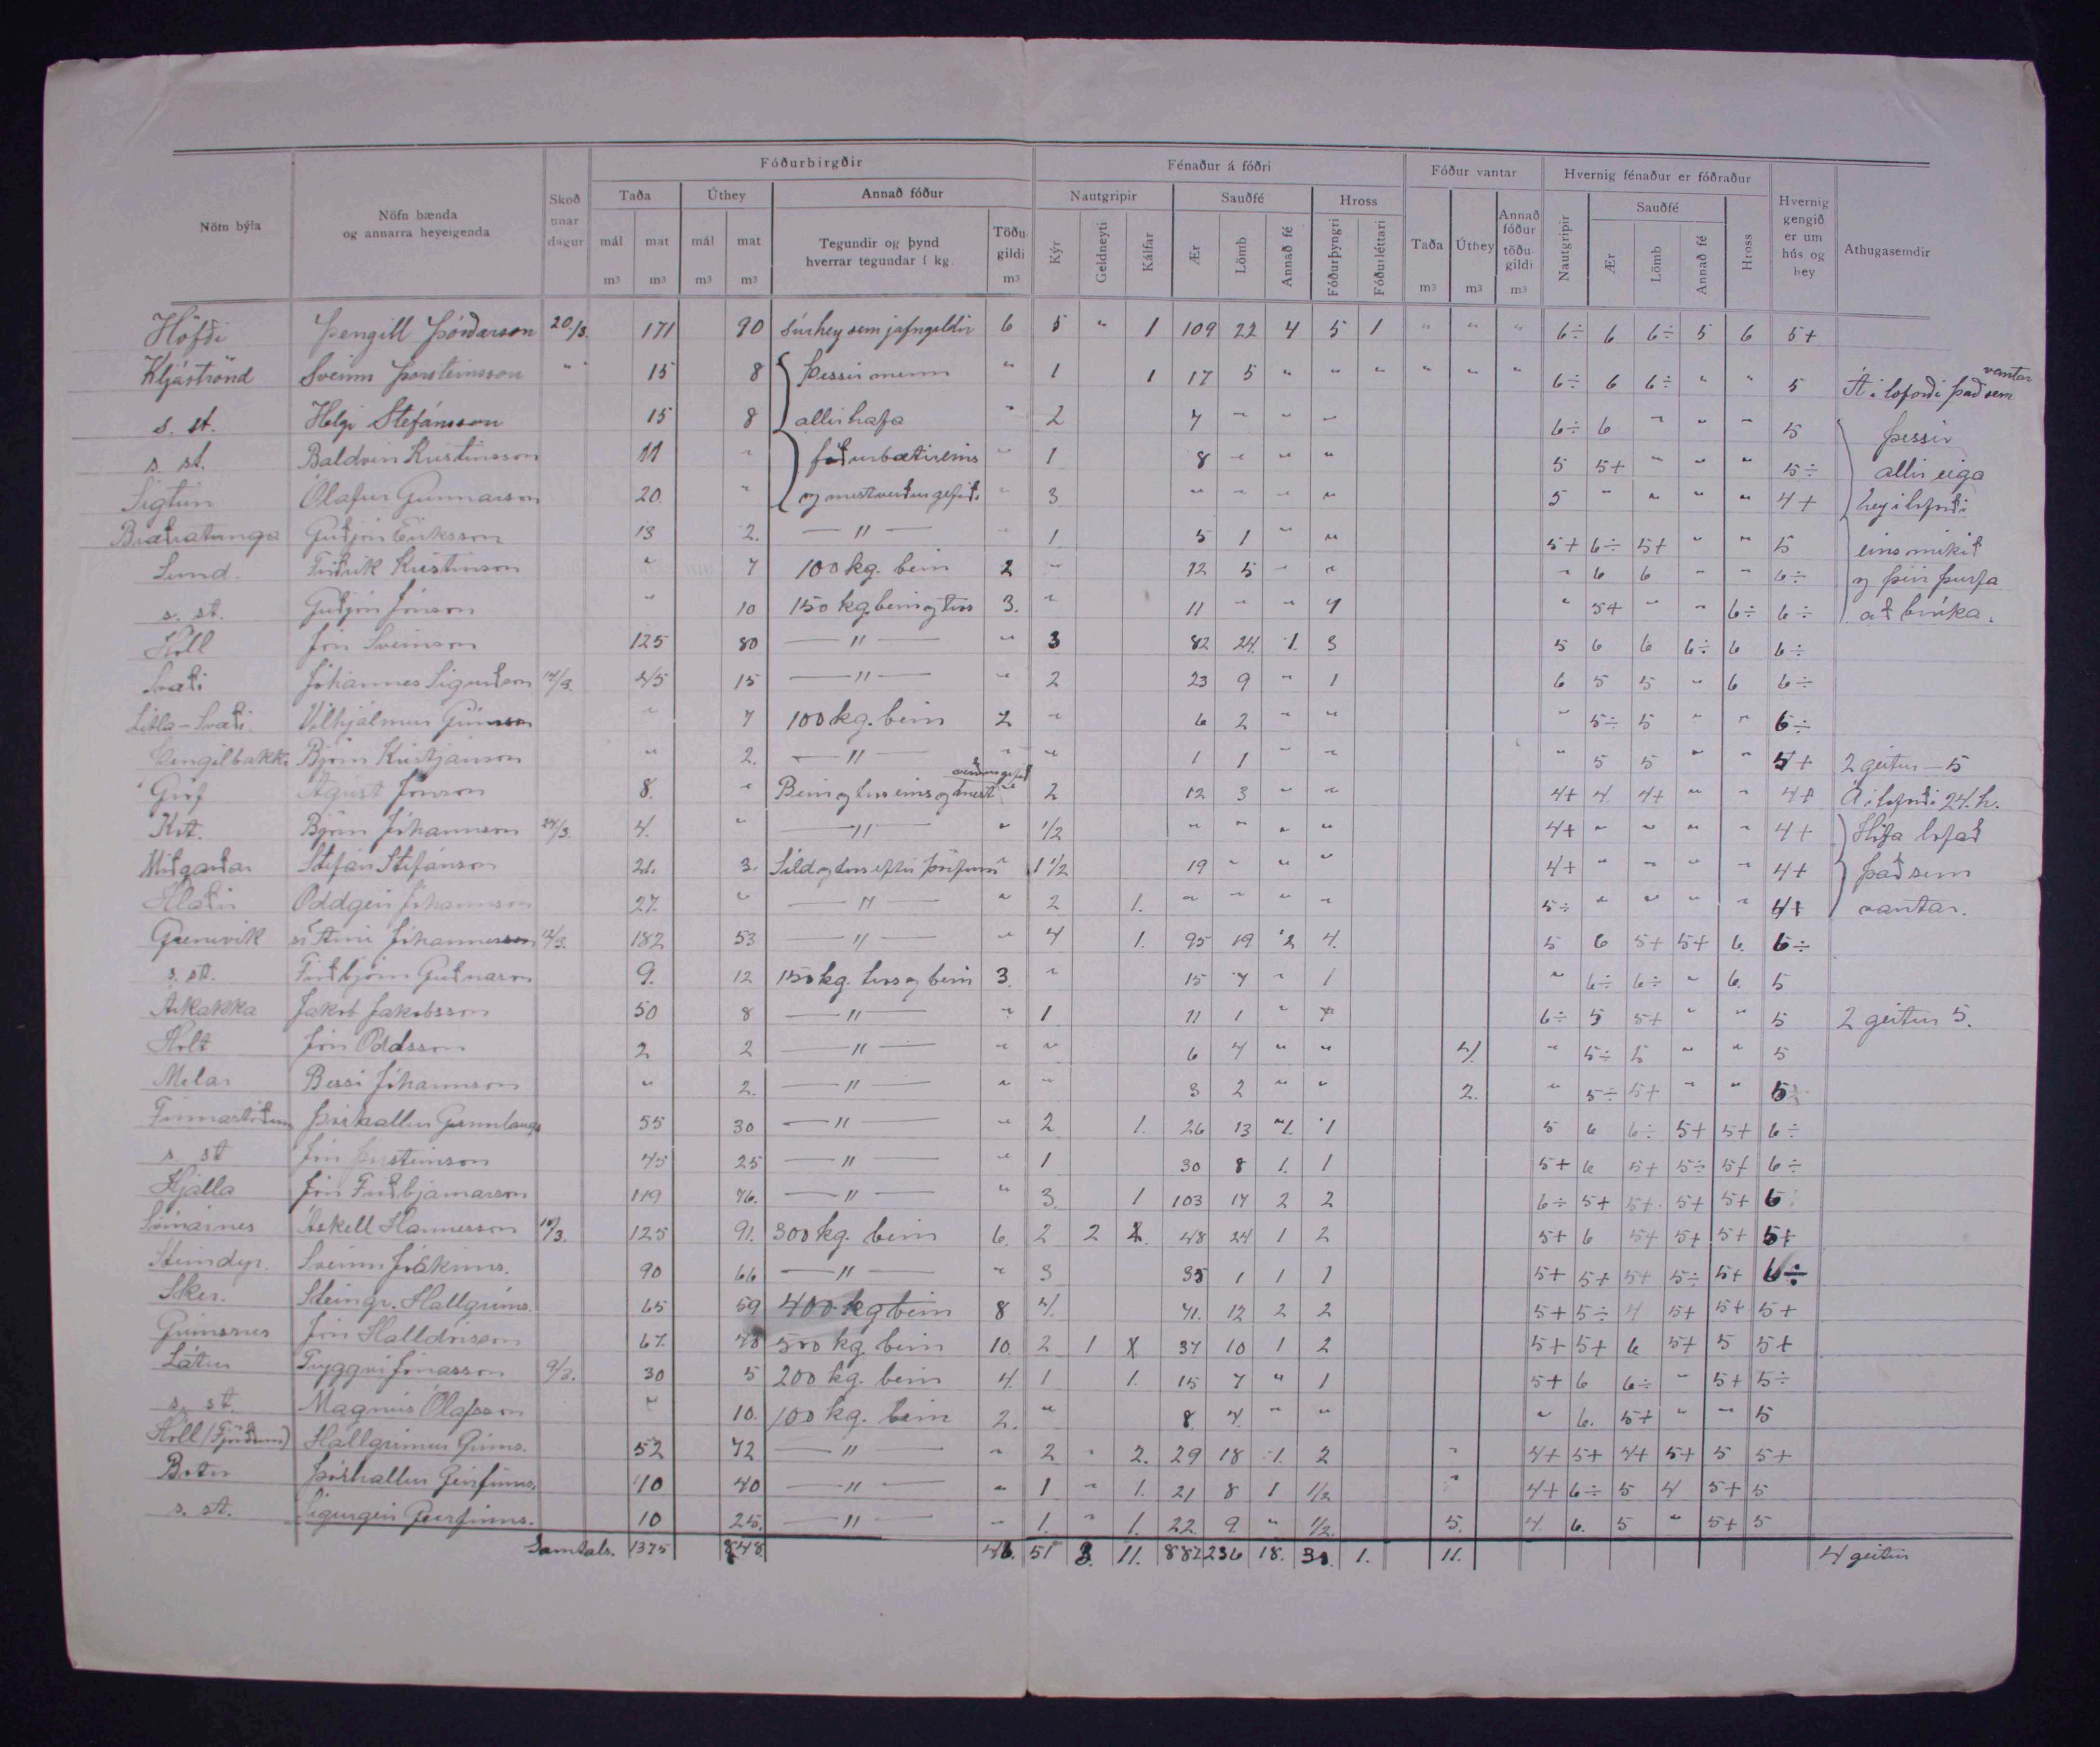 Fóðurbirgðir Fénaður á fóðri Fóður vantar Hvernig fénaður er fóðraður
Nöfn býla Nöfn bænda og annarra heyeigenda Skoðunardagur Taða Úthey Annað fóður Nautgripir Sauðfé Hross Taða Úthey Annað fóður töðugildi Nautgripir Sauðfé Hross Hvernig gengið er um hús og hey Athugasemdir
mál mat mál mat Tegundir og þynd hverrar tegundar í kg. Töðugildi Kýr Geldneyti Kálfar Ær Lömb Annað fé Fóðurþyngri Fóðurléttari Ær Lömb Annað fé
m³ m³ m³ m³ m³ m³ m³ m³
Höfði Þengill Þórðarson 20./3. 171 90 Súrhey sem jafngildir 6 5 " 1 109 22 4 5 1 " " " 6÷ 6 6÷ 5 6 5+
Kljáströnd Sveinn Þorsteinsson " 15 8 Þessir menn " 1 1 17 5 " " " " " " 6÷ 6 6÷ " " 5 Á í loforði það sem vantar
s. st. Helgi Stefánsson 15 8 allir hafa " 2 7 " " " 6÷ 6 " " " 5 Þessir
s. st. Baldvin Kristinsson 11 " fóðurbætir eins " 1 8 " " " 5 5+ " " " 5÷ allir eiga
Sigtún Ólafur Gunnarson 20 " og mest verður gefið. " 3 " " " " 5 " " " " 4+ hey í loforði
Bræðratunga Guðjón Eiríksson 13 2. — " — " 1 5 1 " " 5+ 6÷ 5+ " " 5 eins mikið
Lund. Friðrik Kristinson " 7 100 kg. bein 2 " 12 5 " " " 6 6 " " 6÷ og þeir þurfa
s. st. Guðjón Jónson " 10 150 kg. bein og 3. " 11 " " 1 " 5+ " " 6÷ 6÷ að brúka.
Höll Jón Sveinson 125 80 — " — " 3 82 24. 1. 3 5 6 6 6÷ 6 6÷
Svæði Jóhannes Sigurðsson 45 15 — " — " 2 23 9 " 1 6 5 5 " 6 6÷
Litla-Svæði. Vilhjálmur " 7 100 kg. bein 2 " 6 2 " " " 5÷ 5 " " 6÷
Þengilbakki Björn Kristjánson " 2. — " — " " 1 1 " " " 5 5 " " 5+ 2 geitur — 5
Gröf Ágúst Jónson 8. " Bein og eins og mest verður gefið " 2 12 3 " " 4+ 4 4+ " " 4+ Á í loforði 24 h.
Kot. Björn Jóhannson 24/3. 4. " — " — " 1/2 " " " " 4+ " " " " 4+ Hafa lofað
Miðgarðar Stefán Stefánson 21. 3. Síld og eftir þörfum " 1 1/2 19 " " " 4+ " " " " 4+ það sem
Hlaðir Oddgeir Jóhannson 27. " — " — " 2 1. " " " " 5÷ " " " " 4+ vantar.
Grenivík Jóhannesson 182 53 — " — " 4 1. 95 19 2 4. 5 6 5+ 5+ 6. 6÷
s. st. Friðbjörn Guðnason 9. 12 150 kg. og bein 3. " 15 7 " 1 " 6÷ 6÷ " 6. 5
Jakob Jakobsson 50 8 — " — " 1 11 1 " 6÷ 5 5+ " " 5 2 geitur 5.
Holt Jón Oddsson 2 2 — " — " " 6 4 " " 4. " 5÷ 5 " " 5
Melar Bessi Jóhannson " 2. — " — " " 3 2 " " 2. " 5÷ 5+ " " 5
Þórhallur Gunnlaugs 55 30 — " — " 2 1. 26 13 1. 1 5 6 6÷ 5+ 5+ 6÷
s. st Jón Þorsteinson 45 25 — " — " 1 30 8 1. 1 5+ 6 5+ 5÷ 5+ 6÷
Hjalla Jón Friðbjarnarson 119 76. — " — " 3. 1 103 17 2 2 6÷ 5+ 5+ 5+ 5+ 6
Áskell Hannesson 125 91. 300 kg. bein 6. 2 2 48 24 1 2 5+ 6 5+ 5+ 5+ 5+
Steindyr. Sveinn 90 66 — " — " 3 35 1 1 1 5+ 5+ 5+ 5÷ 5+ 6÷
Sker. Steingr. Hallgríms. 65 59 400 kg bein 8 4. 41. 12 2 2 5+ 5÷ 4 5+ 5+ 5+
Grímsnes Jón Halldórsson 67. 40 500 kg. bein 10. 2 1 37 10 1 2 5+ 5+ 6 5+ 5 5+
Látur Tryggvi Jónasson 9/3. 30 5 200 kg. bein 4. 1 1. 15 7 " 1 5+ 6 6÷ " 5+ 5÷
s. st. Magnús Ólafsson " 10. 100 kg. bein 2. " 8. 4. " " " 6. 5+ " " 5
Höll (Fjörðum) Hallgrímur 52 72 — " — " 2 " 2. 29 18 1. 2 " 4+ 5+ 4+ 5+ 5 5+
Botn Þórhallur Geirfinns. 40 40 — " — " 1 " 1. 21 8 1 1/2 " 4+ 6÷ 5 4 5+ 5
s. st. Sigurgeir Geirfinns. 10 25. — " — " 1. " 1. 22. 9 " 1/2. 5. 4. 6. 5 " 5+ 5
Samtals. 1375 848 46. 51 3. 11. 882 236 18. 1. 11. 4 geitur